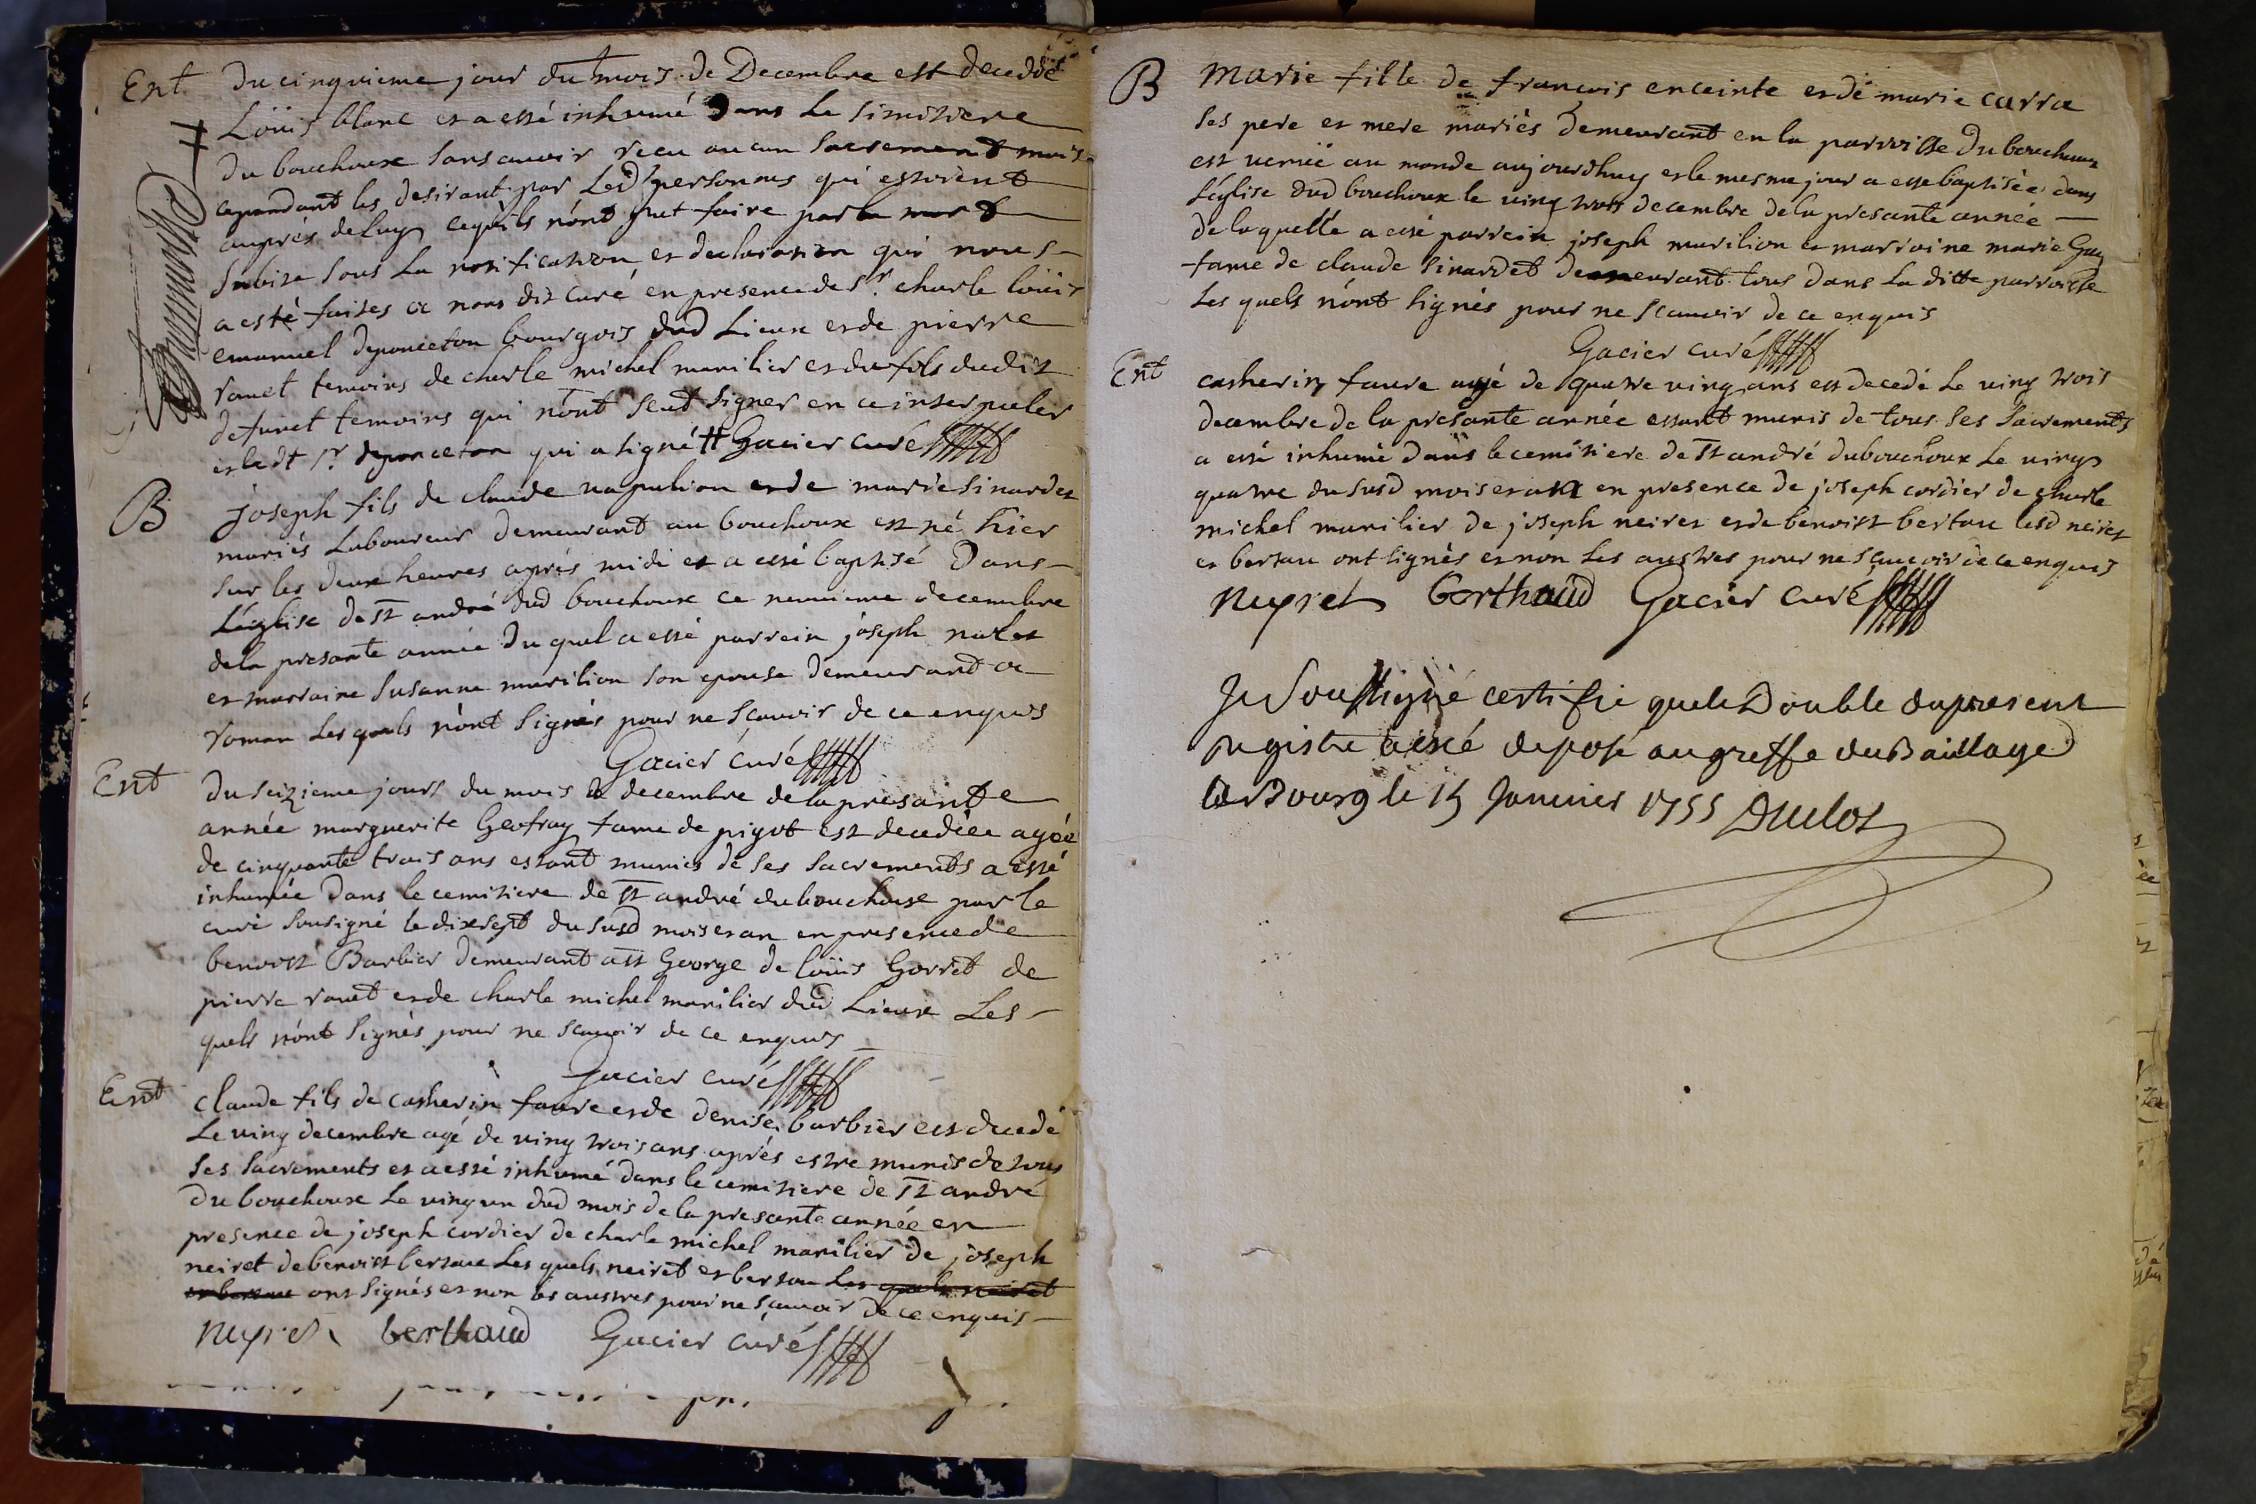 Ent Du cinquieme jour du mois de Decembre est decedé
Loüis blanc et a esté inhumé Dans Le Simitiere
du bouchoux sans avoir recu aucun Sacrement mois
cependant les desirant par Led personnes qui estoient
auprés de luy ce qu'ils n'ont put faire par la mort
Subite sous La notification et declaration qui nous
a esté faites a nous dit curé en presence de Sr. charle loüis
emanuel deponceton bourgois dud Lieux et de pierre
ravet temoins de charle michel marilier et du fils dudit
defunct temoins qui n'ont seut signer en ce interpueler
et ledt sr deponceton qui a signé # Gacier curé
B Joseph fils de claude napulion et de marie sinardet
mariés Laboureur demeurant au bouchoux est né hier
sur les deux heures aprés midi et a esté baptisé Dans
L'église de st andré dud bouchoux ce neuvieme decembre
de la presante année Du quel a esté parrein joseph
et marraine Susanne marilion son epouse demeurant a
roman Les quels n'ont signés pour ne sçavoir de ce enquis
Gacier curé
Ent Du seizieme jours du mois de decembre de la presante
année marguerite Geofray fame de pigot est decedée agée
de cinquante trois ans estant munies de ses Sacrements a esté
inhumée Dans le cemitiere de st andré du bouchoux par le
curé Sousigné le dixsept du susd mois et an en presence de
benoist Barbier demeurant a st George de loüis Gorret de
pierre ravet et de charle michel marilier dud Lieux Les
quels n'ont signés pour ne scavoir de ce enquis
Gacier curé
Ent claude fils de catherin faure et de denise barbier est decedé
Le ving decembre agé de ving trois ans aprés estre munis de tous
ses sacrements et a esté inhumé dans le cemitiere de st andré
Du bouchoux Le ving un dud mois de la presante année en
presence de joseph cordier de charle michel marilier de joseph
neiret de benoist bertau Les quels neiret et bertau Les quels neiret
et bertau ont signés et non les austres pour ne sçavoir de ce enquis
neyret berthaud Gacier curé
B Marie fille de francois enceinte et de marie carra
ses pere et mere mariés demeurant en la parroisse du bouchoux
est venüe au monde aujourdhuy et le mesme jour a esté baptisée dans
L'église dud bouchoux le ving trois decembre de la presante année
de laquelle a esté parrein joseph marilion et marraine marie Guy
fame de claude sinardet demeurant tous dans La ditte parroisse
Les quels n'ont signés pour ne scavoir de ce enquis
Gacier curé
Ent catherin faure agé de quatre ving ans est decedé Le ving trois
decembre de la presante année estant munis de tous ses Sacrements
a esté inhumé dans le cemitiere de st andré du bouchoux Le ving
quatre du susd mois et an en presence de joseph cordier de charle
michel marilier de joseph neiret et de benoist bertau lesd neiret
et bertau ont signés et non Les austres pour ne sçavoir de ce enquis
neyret berthaud Gacier curé
Je Soussigné certifie que le Double du present
registre a esté deposé au greffe du Baillage
de Bourg le 15 Janvier 1755 Duclos